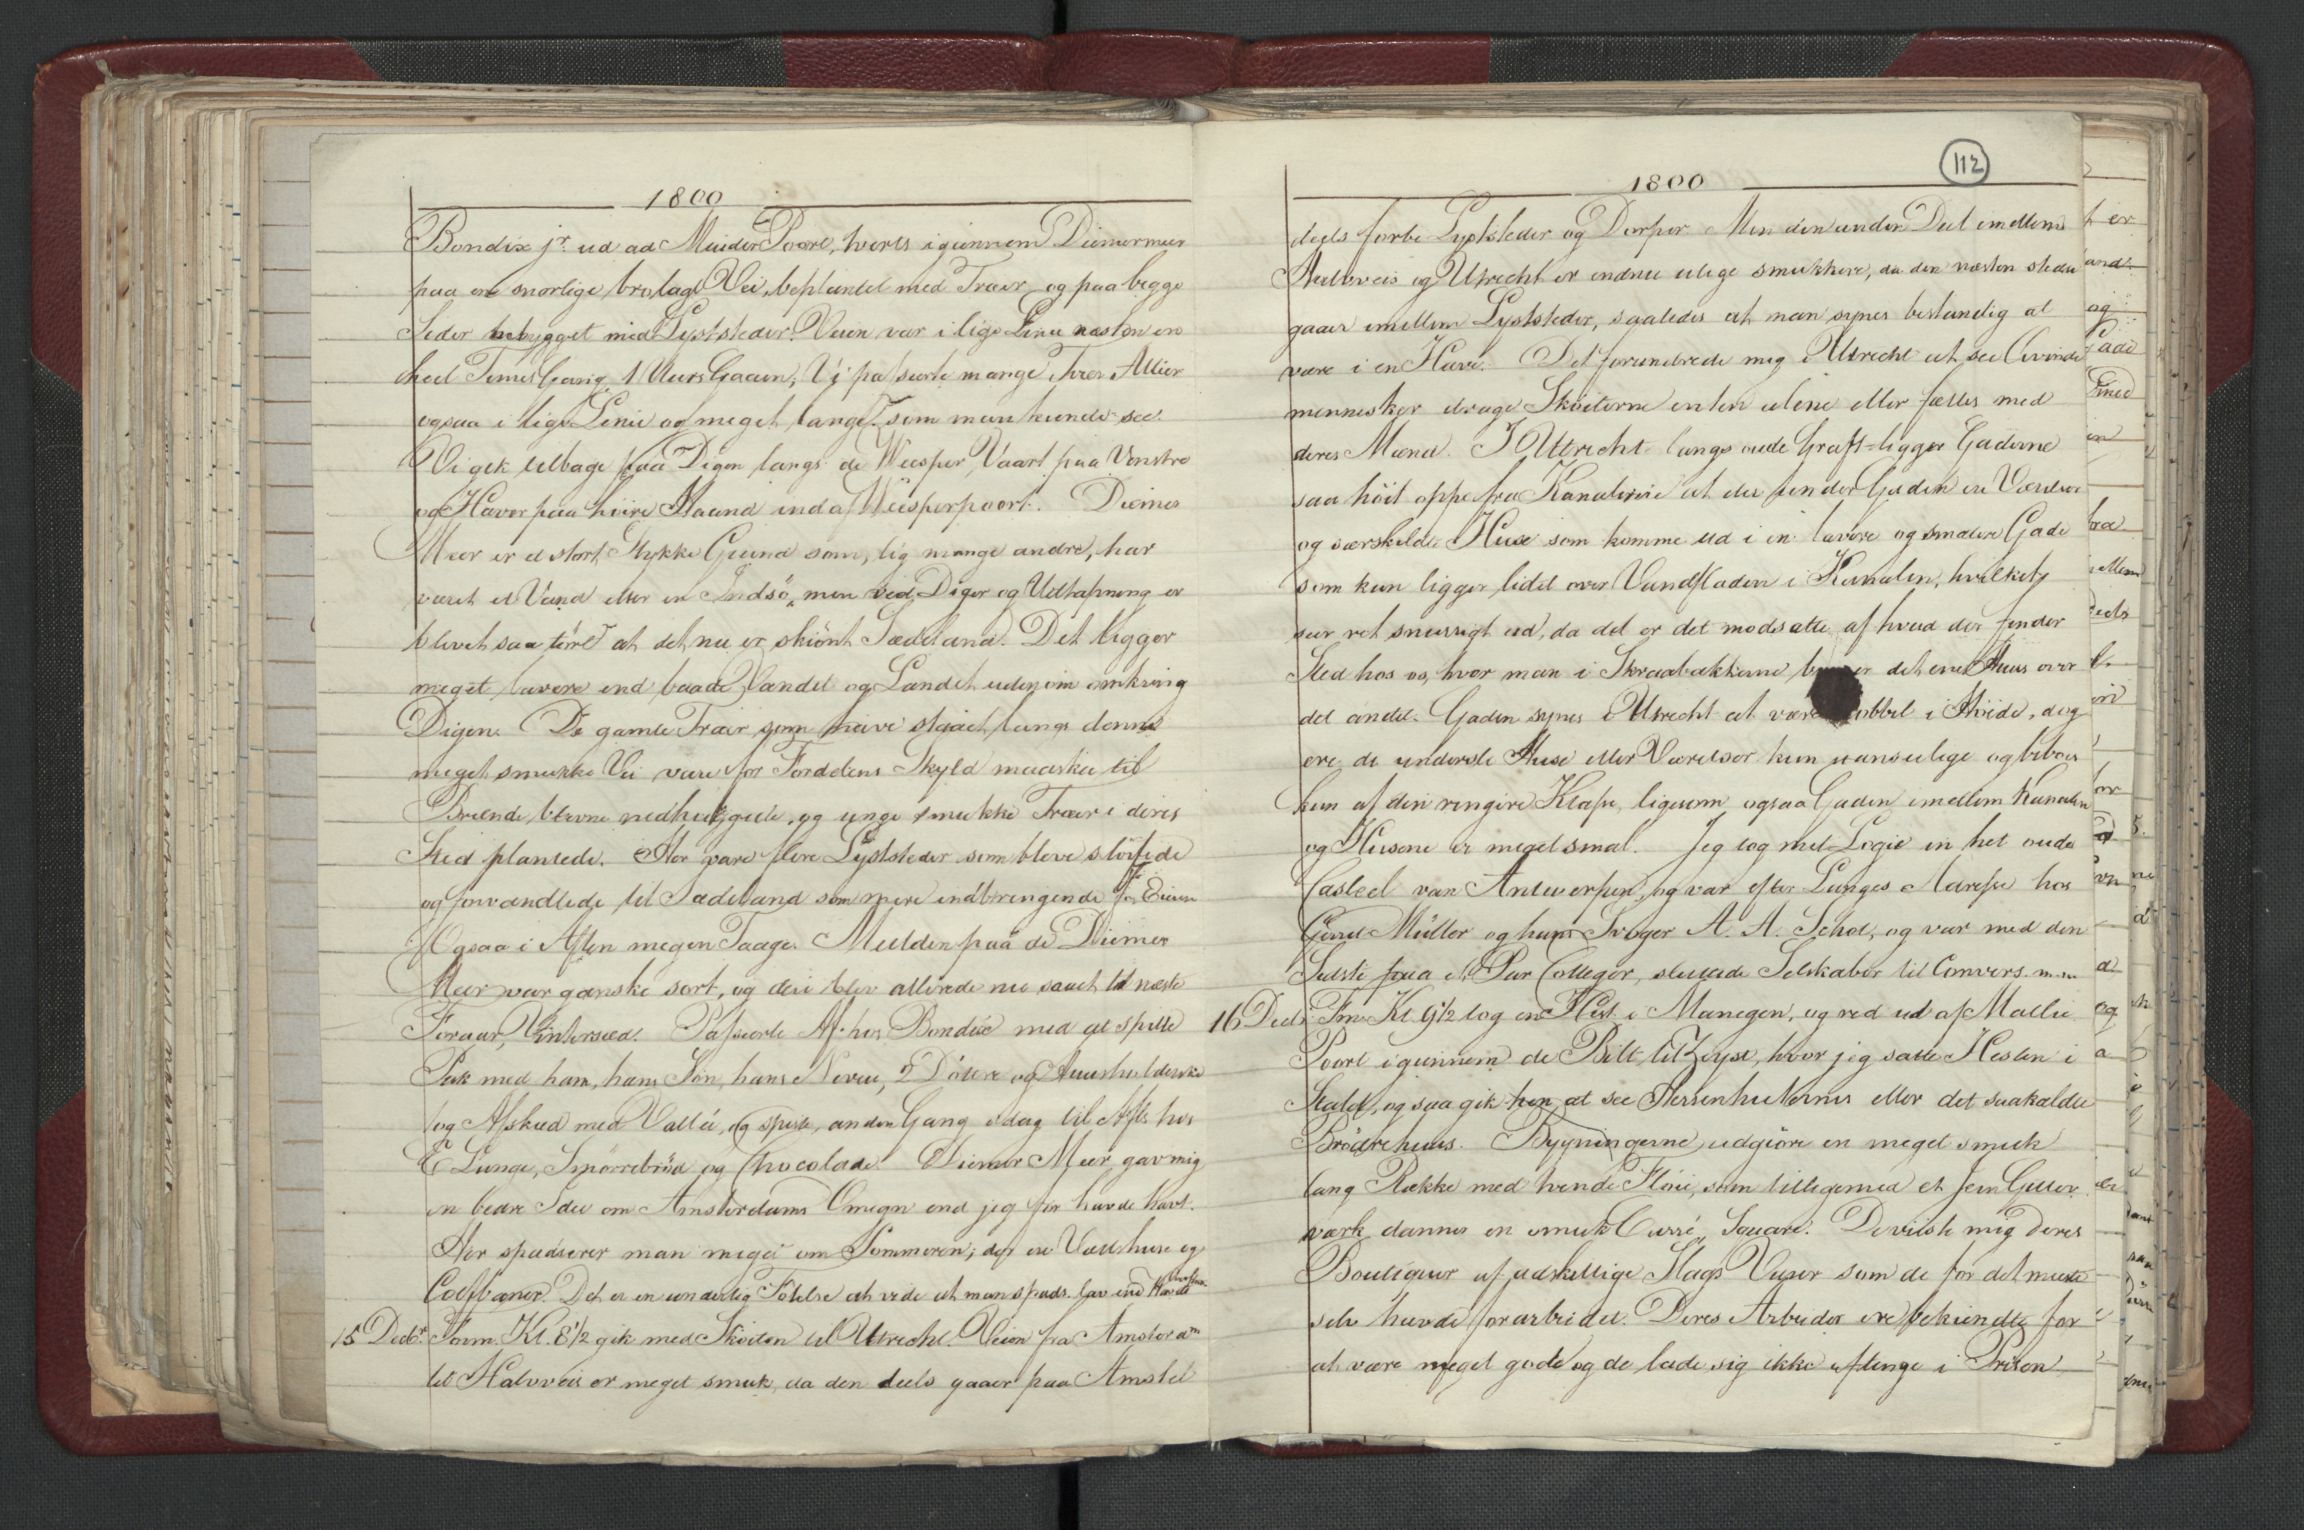 1800
Bondix jr. ud ad Muider Poort, tverts igiennem Diemermeer
paa en snorlige brolagt Vei, beplantet med Træer og paa begge
Sider bebygget med Lyststeder. Veien var i lige Linie næsten en
heel Times Gang, 1 Uurs Gaaen, Vi passerte mange tvær Alleer
ogsaa i lige Linie og meget lange, som man kunde see.
Vi gik tilbage paa Digen langs de Weesper Vaart paa Venstre
og Haver paa høire Haand ind af Weesperpoort. Diemer
Meer er et stort Stykke Grund som, lig mange andre, har
været et Vand eller en Indsö, men ved Diger og Udtapning er
blevet saa tört at det nu er skiönt Sædeland. Det ligger
meget lavere end baade Vandet og Landet udenom omkring
Digen. De gamle Træer som have staaet langs denne
meget smukke Vei vare for Fordelens Skyld maaskee til
Brænde blevne nedhuggede, og unge smukke Træer i deres
Sted plantede. Her vare flere Lyststeder som bleve slöifede
og forvandlede til Sædeland som mere indbringende for Eieren
Ogsaa i Aften megen Taage. Mulden paa de Diemer
Meer var ganske sort, og der blev allerede nu saaet til næste
Foraar, Vintersæd. Passerte Af. hos Bondix med at spille
med ham, hans Sön, hans Neveu, 2 Döttre og Huusholderske
tog Afsked med Vallée, og spiste, anden Gang idag til Afts hos
E Lunge, Smörrebröd og Chocolade. Diemer Meer gav mig
en bedre Idee om Amsterdams Omegn end jeg för havde havt.
Her spadserer man meget om Sommeren; der ere Vertshuse og
Colfbaner. Det er en underlig Fölelse at vide at man spads. lav. end Havets
15 Decbr. Form. Kl. 8 1/2 gik med Skøiten til Utrecht. Veien fra Amsterdm
til Halvveis er meget smuk, da den deels gaaer paa Amstel
1800
112
deels forbi Lyststeder og Dorper. Men den anden Deel imellem
Halvveis og Utrecht er endnu ulige smukkere, da den næsten stedse
gaaer imellem Lyststeder, saaledes at man synes bestandig at
være i en Have. Det forundrede mig i Utrecht at see Qvinde
mennesker drage Skøiterne enten alene eller fælles med
deres Mænd. I Utrecht langs oude Graft ligger Gaderne
saa höit oppe fra Kanalerne at der under Gaden ere Værelser
og særskildte Huse som komme ud i en lavere og smalere Gade
som kun ligger lidet over Vandfladen i Kanalen, hvilket
seer ret snurrigt ud, da det er det modsatte af hvad der finder
Sted hos os, hvor man i Skraabakkerne det ene Huus over
det andet. Gaden synes i Utrecht at være dobbel i Höide, dog
ere de underste Huse eller Værelser kun uanseelige og beboes
kun af den ringere Klasse, ligesom ogsaa Gaden imellem Kanalen
og Husene er meget smal. Jeg tog mit Logie in het oude
Casteel van Antwerpen, og var efter Lunges Adresse hos
Gerrit Müller og hans Svoger A. A. Schot, og var med den
Sidste paa et Par Colleger, sluttede Selskaber til Convers.
16 Decbr. Fm. Kl. 9 1/2 tog en Hest i Manegen, og red ud af Mallie
Poort igiennem de Bilt til Zeyst, hvor jeg satte Hesten i
Stald, og saa gik hen at see Herrenhuternes eller det saakaldte
Brödrehuus. Bygningerne udgiöre en meget smuk
lang Række med tvende Flöie, som tilligemed et Jern Gitter
værk danner en smuk Carré, Square. De viiste mig deres
Boutiquer af adskillige Slags Varer som de for det meeste
selv havde forarbeidet. Deres Arbeider ere bekiendte for
at være meget gode og de lade sig ikke aftinge i Prisen